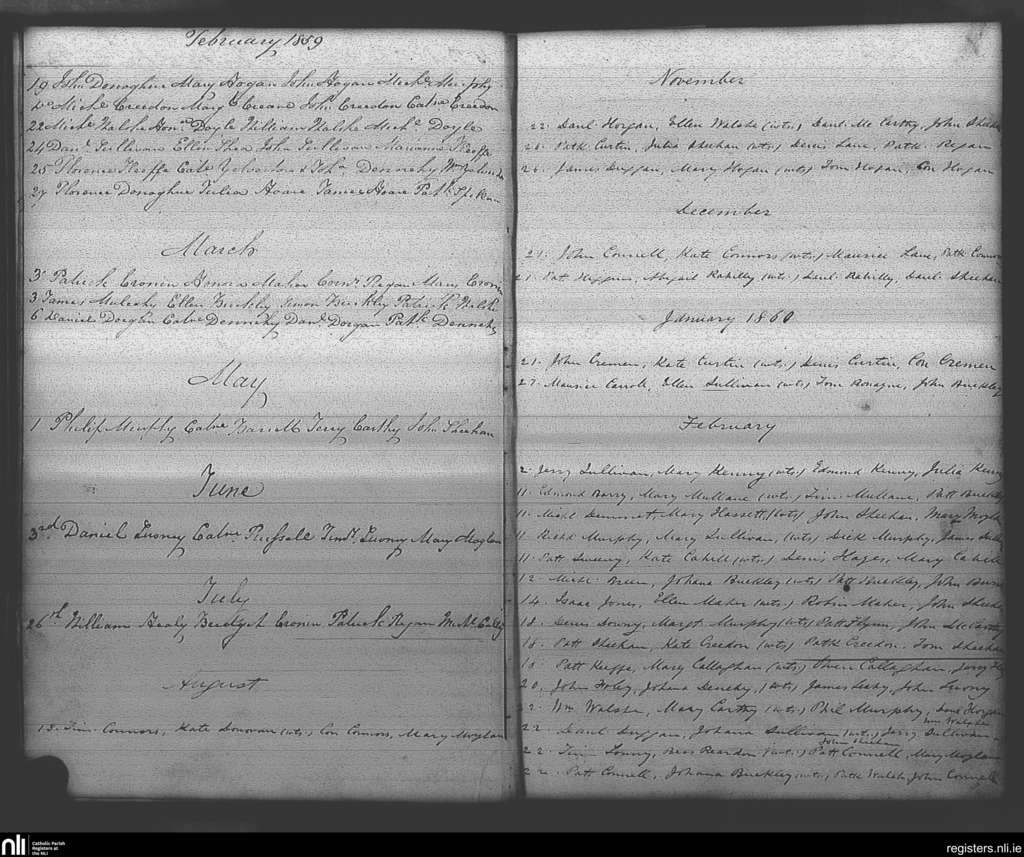 February 1859
19 John Donoghue Mary Hogan John Hogan Mich. Murphy
Do Michl Creedon Margt Crean John Creedon Catne Creedon
22 Michl Walshe Honra Doyle William Walshe Michl Doyle
24 Danl Sullivan Ellen Shea John Sullivan Marianne Keeffe
25 Florence Keeffe Catne John Dennehy Wm
27 Florence Donoghue Julia Hoare James Hoare Patk
March
3 Patrick Cronin Honora Maher Corns Regan Mary Cronin
3 James Mulcahy Ellen Buckley Simon Buckley Patrick Walshe
6 Daniel Dorgan Catne Dennehy Danl Dorgan Patk Dennehy
May
1 Philip Murphy Catne Barrett Terry Carthy John Sheehan
June
3rd Daniel Catne Russell Timy Mary Moylan
July
26th William Healy Bridget Cronin Patrick Regan
August
15. Tim Connors, Kate Donovan (wts.) Con Connors, Mary Moylan
November
22. Danl Horgan, Ellen Walshe (wts.) Danl McCarthy, John Sheehan
26. Patk Curtin, Julia Sheehan (wts.) Denis Lane, Patk Regan
26. James Duggan, Mary Hogan (wts.) Tom Hogan, Con Hogan
December
21. John Connell, Kate Connors, (wts.) Maurice Lane, Patk Connor
21. Pat Higgins, Abigail Rahilly (wts.) Danl Rahilly, Danl Sheehan
January 1860
21. John Cremen, Kate Curtin (wts.) Denis Curtin, Con Cremen
27. Maurice Carroll, Ellen Sullivan (wts) Tom Ronayne, John Buckley
February
2. Jerry Sullivan, Mary Kenny (wts.) Edmond Kenny, Julia Kenny
11. Edmond Barry, Mary Mullane (wts.) Tim Mullane, Patt Buckley
11. Michl Mary Hassett, (wts) John Sheehan, Mary Moylan
11 Richd Murphy, Mary Sullivan, (wts) Dick Murphy, James
11 Patt Sweeny, Kate Cahill (wts.) Denis Hayes, Mary Cahill
12 Michl Breen, Johana Buckley (wts) Patt Buckley, John
14. Isaac Jones, Ellen Maher (wts) Robin Maher, John Sheehan
18. Denis Downy, Margt Murphy (wts) Patt Flynn, John McCarthy
18. Patt Sheehan, Kate Creedon (wts) Patk Creedon, Tom Sheehan
18 Patt Keeffe, Mary Callaghan (wts.) Owen Callaghan, Jerry
20. John Foley, Johana Denehy, (wts) James Leahy, John
22. Wm Walshe, Mary Carthy (wts.) Phil Murphy, Danl Horgan
Wm Walshe
22. Danl Duggan, Johana Sullivan (wts.) Jerry Sullivan
John Sheehan
22. Tim Bess Reardon (wts.) Patt Connell, Mary Moylan
22. Patt Connell, Johana Buckley (wts.) Patk Walsh, John Connell
nli
Catholic Parish
Registers at
the NLI
registers.nli.ie